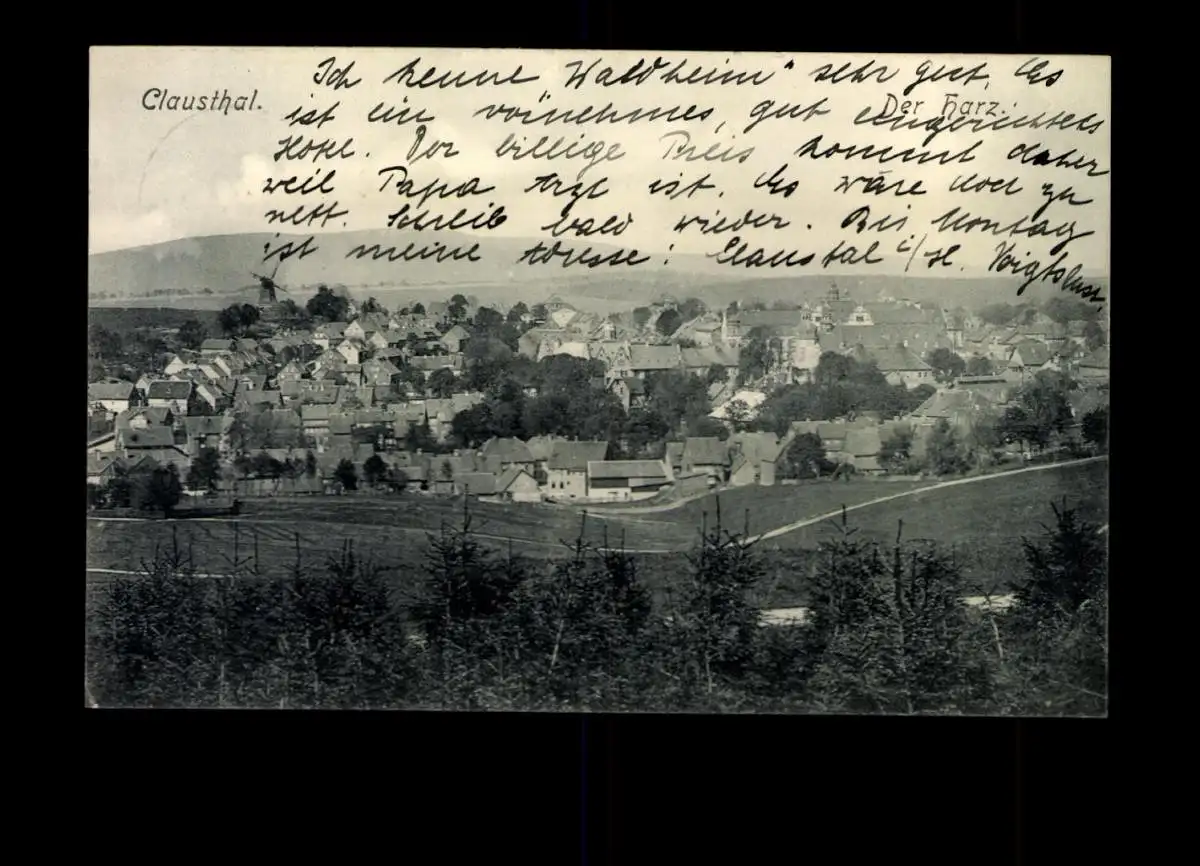 Clausthal.
Der Harz.
Ich kenne Waldheim" sehr gut. Es
ist ein vornehmes, gut eingerichtetes
Hotel. Der billige Preis kommt daher
weil Papa Arzt ist. Es wäre doch zu
nett. Schreib bald wieder. Bis Montag
ist meine Adresse: Claustal i/H. Voigtslust